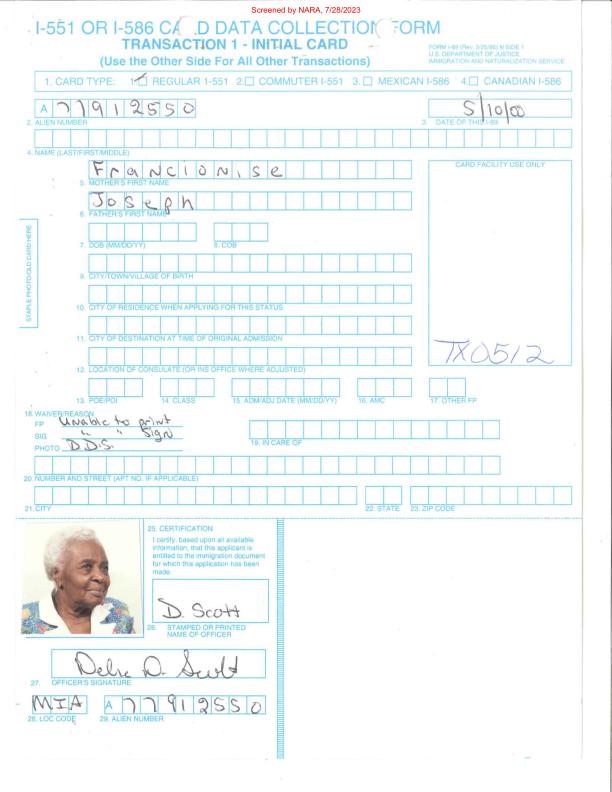 Screened by NARA, 7/28/2023
I-551 OR I-586 CARD DATA COLLECTION FORM
TRANSACTION 1 - INITIAL CARD
(Use the Other Side For All Other Transactions)
FORM I-89 (Rev. 2/25/86) N SIDE 1
U.S. DEPARTMENT OF JUSTICE
IMMIGRATION AND NATURALIZATION SERVICE
1. CARD TYPE: 1. REGULAR 1-551 2. COMMUTER I-551 3. MEXICAN I-586 4. CANADIAN I-586
A 77912550
5/10/00
2. ALIEN NUMBER
3. DATE OF THIS I-89
4. NAME (LAST/FIRST/MIDDLE)
CARD FACILITY USE ONLY
Francionise
5. MOTHER'S FIRST NAME
Joseph
6. FATHER'S FIRST NAME
STAPLE PHOTO/OLD CARD HERE
7. DOB (MM/DD/YY) 8. COB
9. CITY/TOWN/VILLAGE OF BIRTH
10. CITY OF RESIDENCE WHEN APPLYING FOR THIS STATUS
11. CITY OF DESTINATION AT TIME OF ORIGINAL ADMISSION
TX0512
12. LOCATION OF CONSULATE (OR INS OFFICE WHERE ADJUSTED)
13. POE/POI 14. CLASS 15. ADM/ADJ DATE (MM/DD/YY) 16. AMC 17. OTHER FP
18. WAIVER/REASON
FP Unable to print
SIG " " Sign
PHOTO D.D.S.
19. IN CARE OF
20. NUMBER AND STREET (APT NO. IF APPLICABLE)
21. CITY 22. STATE 23. ZIP CODE
25. CERTIFICATION
I certify, based upon all available
information, that this applicant is
entitled to the immigration document
for which this application has been
made.
D. Scott
26. STAMPED OR PRINTED
NAME OF OFFICER
Debra D. Scott
27. OFFICER'S SIGNATURE
MIA A 77912550
28. LOC CODE 29. ALIEN NUMBER